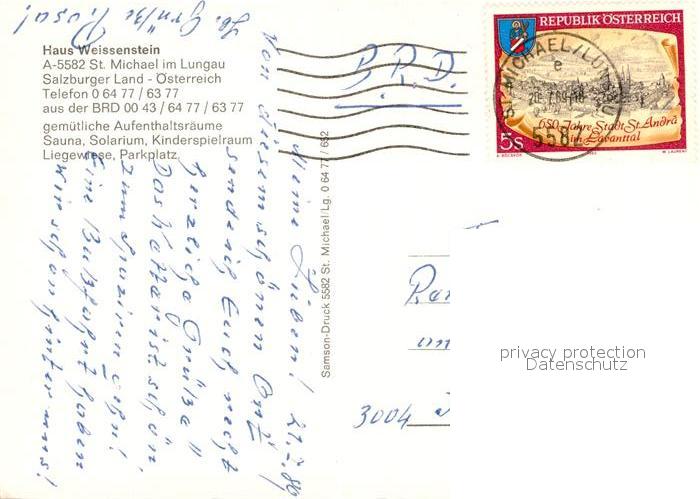 Haus Weissenstein
A-5582 St. Michael im Lungau
Salzburger Land - Österreich
Telefon 0 64 77 / 63 77
aus der BRD 00 43 / 64 77 / 63 77
gemütliche Aufenthaltsräume
Sauna, Solarium, Kinderspielraum
Liegewiese, Parkplatz.
Samson-Druck 5582 St. Michael/Lg. 0 64 77 / 632
REPUBLIK ÖSTERREICH
650 Jahre Stadt St. Andrä
im Lavanttal
5s
ST. MICHAEL/LUNGAU
e
5582
B.R.D.
Meine Lieben! 21.7.89
Von diesem schönen Ort
sende ich Euch recht
herzliche Grüße"
Das Wetter ist schön
zum spazieren gehn!
Eine Busfahrt haben
wir schon hinter uns!
Lb. Grüße Rosa!
an
3004
privacy protection
Datenschutz